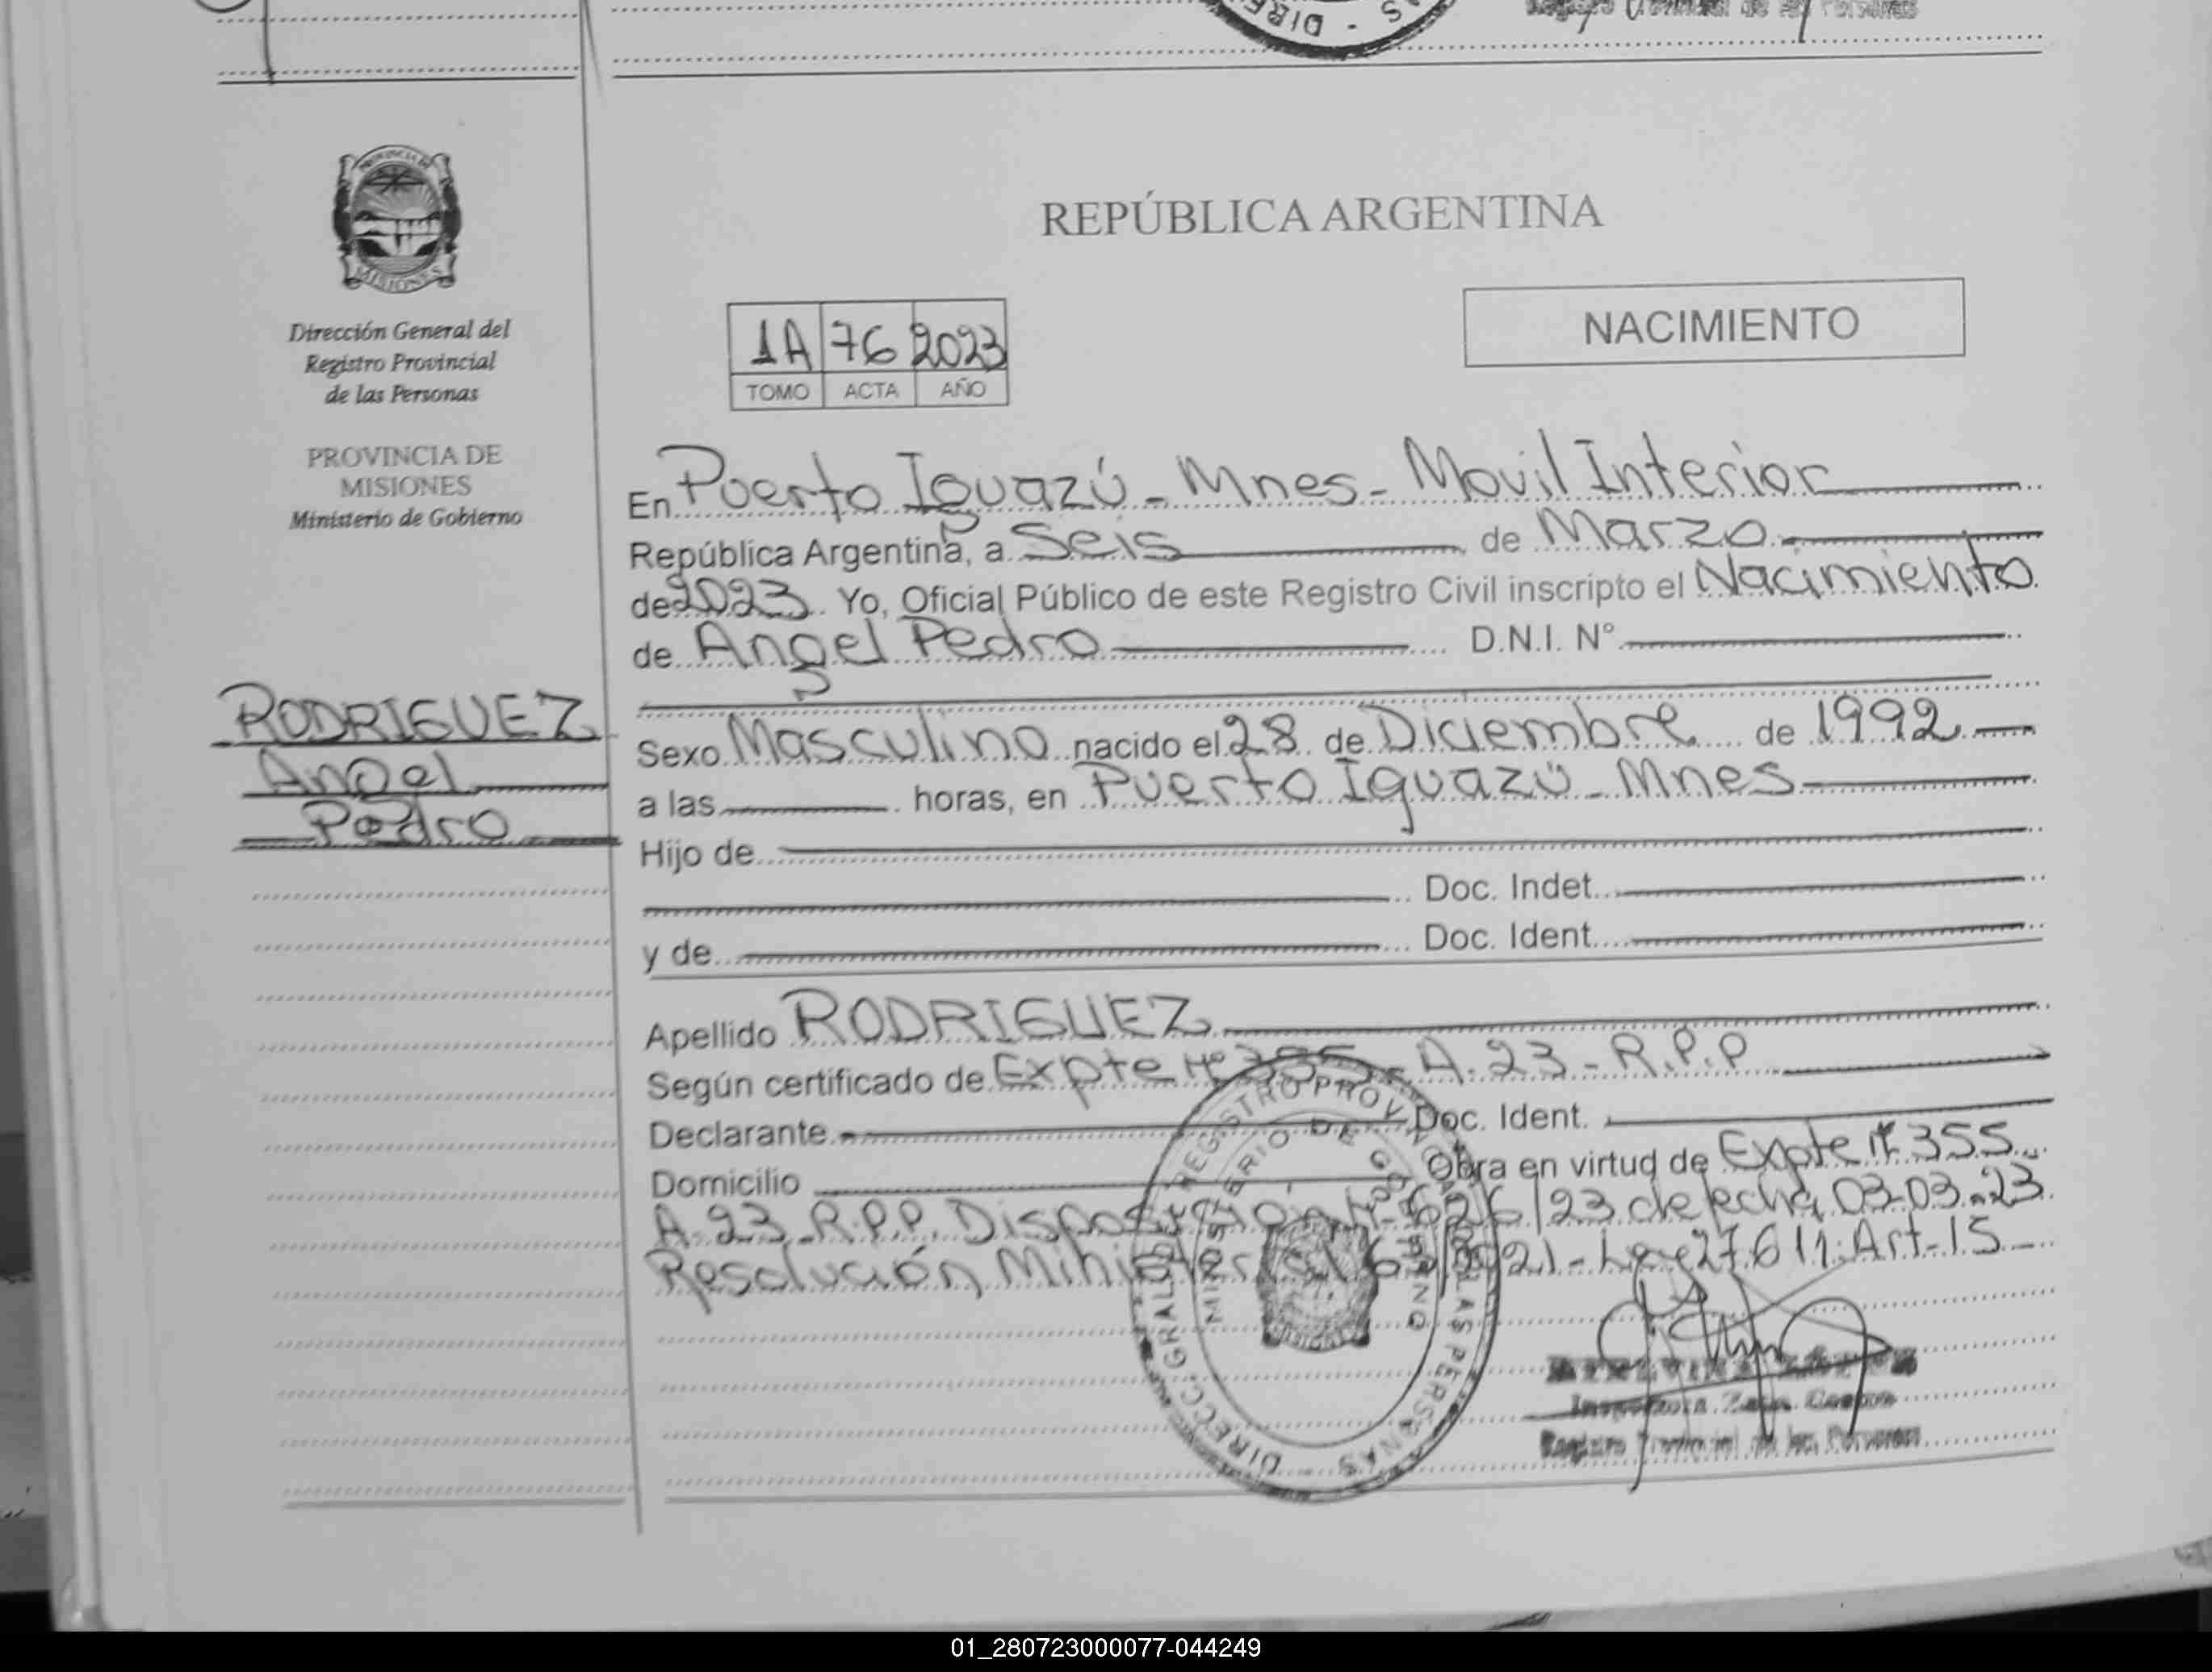 Registro Provincial de las Personas
PROVINCIA DE
MISIONES
Dirección General del
Registro Provincial
de las Personas
PROVINCIA DE
MISIONES
Ministerio de Gobierno
RODRIGUEZ
Angel
Pedro
REPÚBLICA ARGENTINA
1A 76 2023
TOMO ACTA AÑO
NACIMIENTO
En Puerto Iguazú - Mnes - Movil Interior
República Argentina, a Seis de Marzo
de 2023 Yo, Oficial Público de este Registro Civil inscripto el Nacimiento
de Angel Pedro D.N.I. N°
Sexo Masculino nacido el 28 de Diciembre de 1992
a las horas, en Puerto Iguazú - Mnes
Hijo de
Doc. Indet.
y de Doc. Ident.
Apellido RODRIGUEZ
Según certificado de Expte N° 355 - A - 23 - R.P.P
Declarante Doc. Ident.
Domicilio Obra en virtud de Expte N° 355
A. 23 - R.P.P. Disposición 626/23 de fecha 03-03-23
Resolución Ministerial 63/2021 - Ley 27611 Art - 15
DIRECC. GRAL. DEL REGISTRO PROVINCIAL DE LAS PERSONAS
MINISTERIO DE GOBIERNO
MISIONES
Registro Provincial de las Personas
01_280723000077-044249